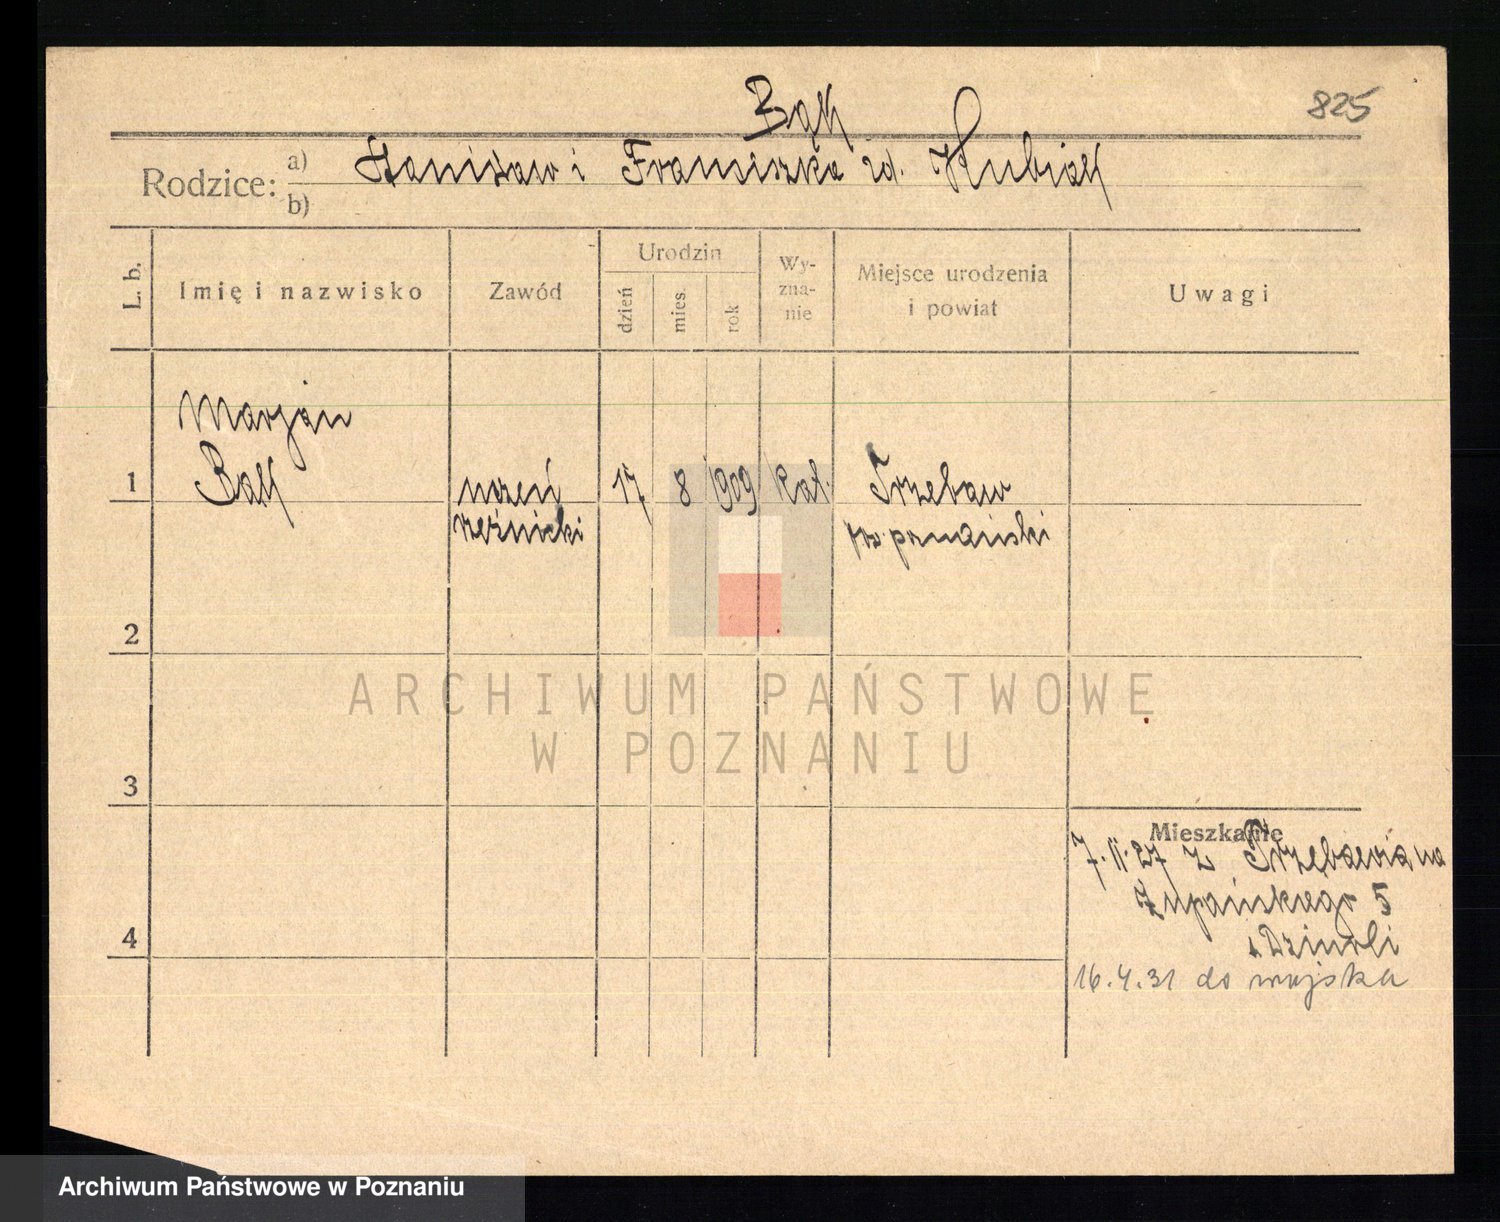 825
Bąk
Rodzice: a) Stanisław i Franciszka zd. Kubiak
b)
L. b.
Imię i nazwisko
Zawód
Urodzin
dzień
mies.
rok
Wy-
zna-
nie
Miejsce urodzenia
i powiat
Uwagi
Marjan
1 Bąk uczeń 17 8 1909 kat. Trzebaw
rzeźnicki pow. poznański
2
ARCHIWUM PAŃSTWOWE
W POZNANIU
3
Mieszkanie
7.11.27 z Trzebawia na
Żupańskiego 5
4
16.4.31 do wojska
Archiwum Państwowe w Poznaniu